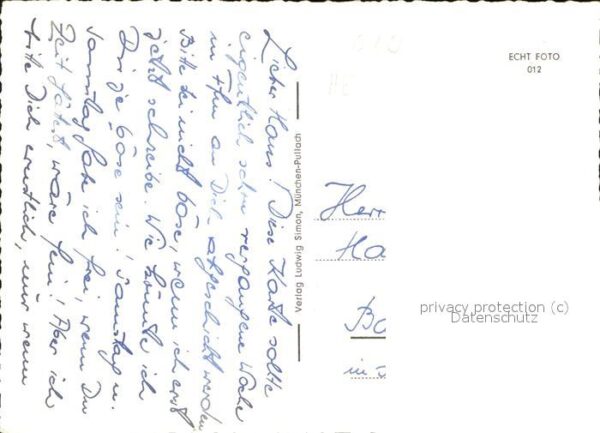 Lieber Hans! Diese Karte sollte
eigentlich schon vergangene Woche
in an Dich abgeschickt werden
Bitte sei nicht böse, wenn ich erst
jetzt schreibe. Wie könnte ich
Dir je böse sein! Samstag u.
Sonntag habe ich frei, wenn Du
Zeit hätest, wäre fein! Aber ich
bitte Dich ernstlich, nur wenn
Verlag Ludwig Simon, München-Pullach
ECHT FOTO
012
Herr
Ha
Bo
in
privacy protection (c)
Datenschutz